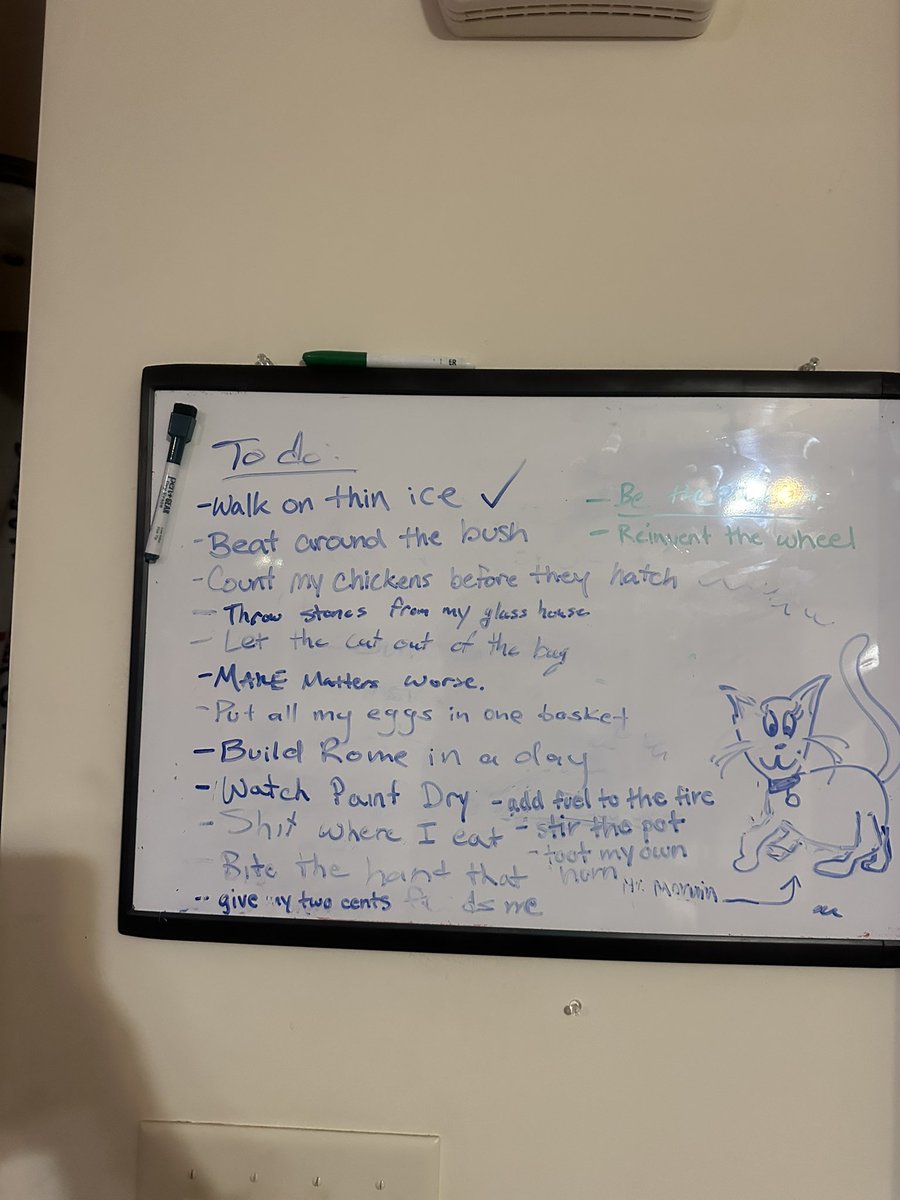 To do:
-Walk on thin ice ✓
-Beat around the bush
-Count my chickens before they hatch
- Throw stones from my glass house
- Let the cat out of the bag
-MAKE Matters worse.
-Put all my eggs in one basket
-Build Rome in a day
-Watch Paint Dry
- Shit where I eat
Bite the hand that
feeds me
-- give my two cents
-add fuel to the fire
-stir the pot
-toot my own
horn
- Be the
- Reinvent the wheel
Mr.